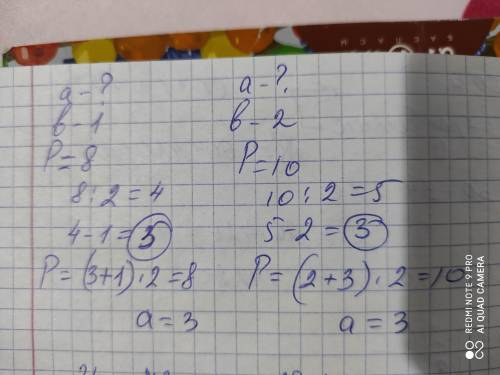 a – ?
в – 1
P = 8
8 : 2 = 4
4 – 1 = 3
P = (3+1) · 2 = 8
a = 3
a – ?
в – 2
P = 10
10 : 2 = 5
5 – 2 = 3
P = (2+3) · 2 = 10
a = 3
REDMI NOTE 9 PRO
AI QUAD CAMERA